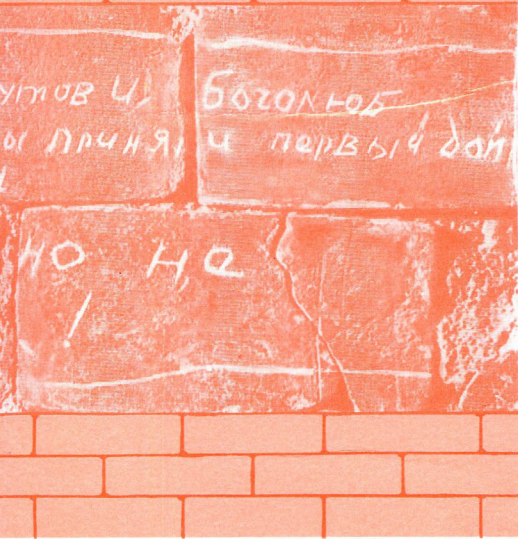 утов и) боголюб
ы приняли первый бой
но не
!